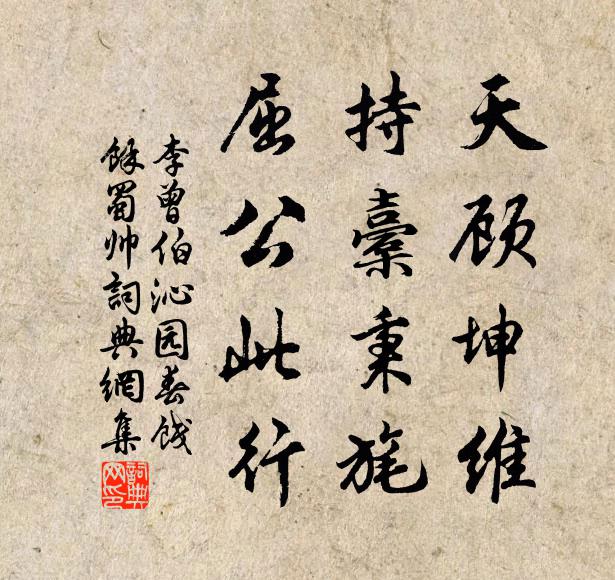 天顾坤维
持橐秉旄
屈公此行
李曾伯沁园春饯
馀蜀帅词典网集
词典网印